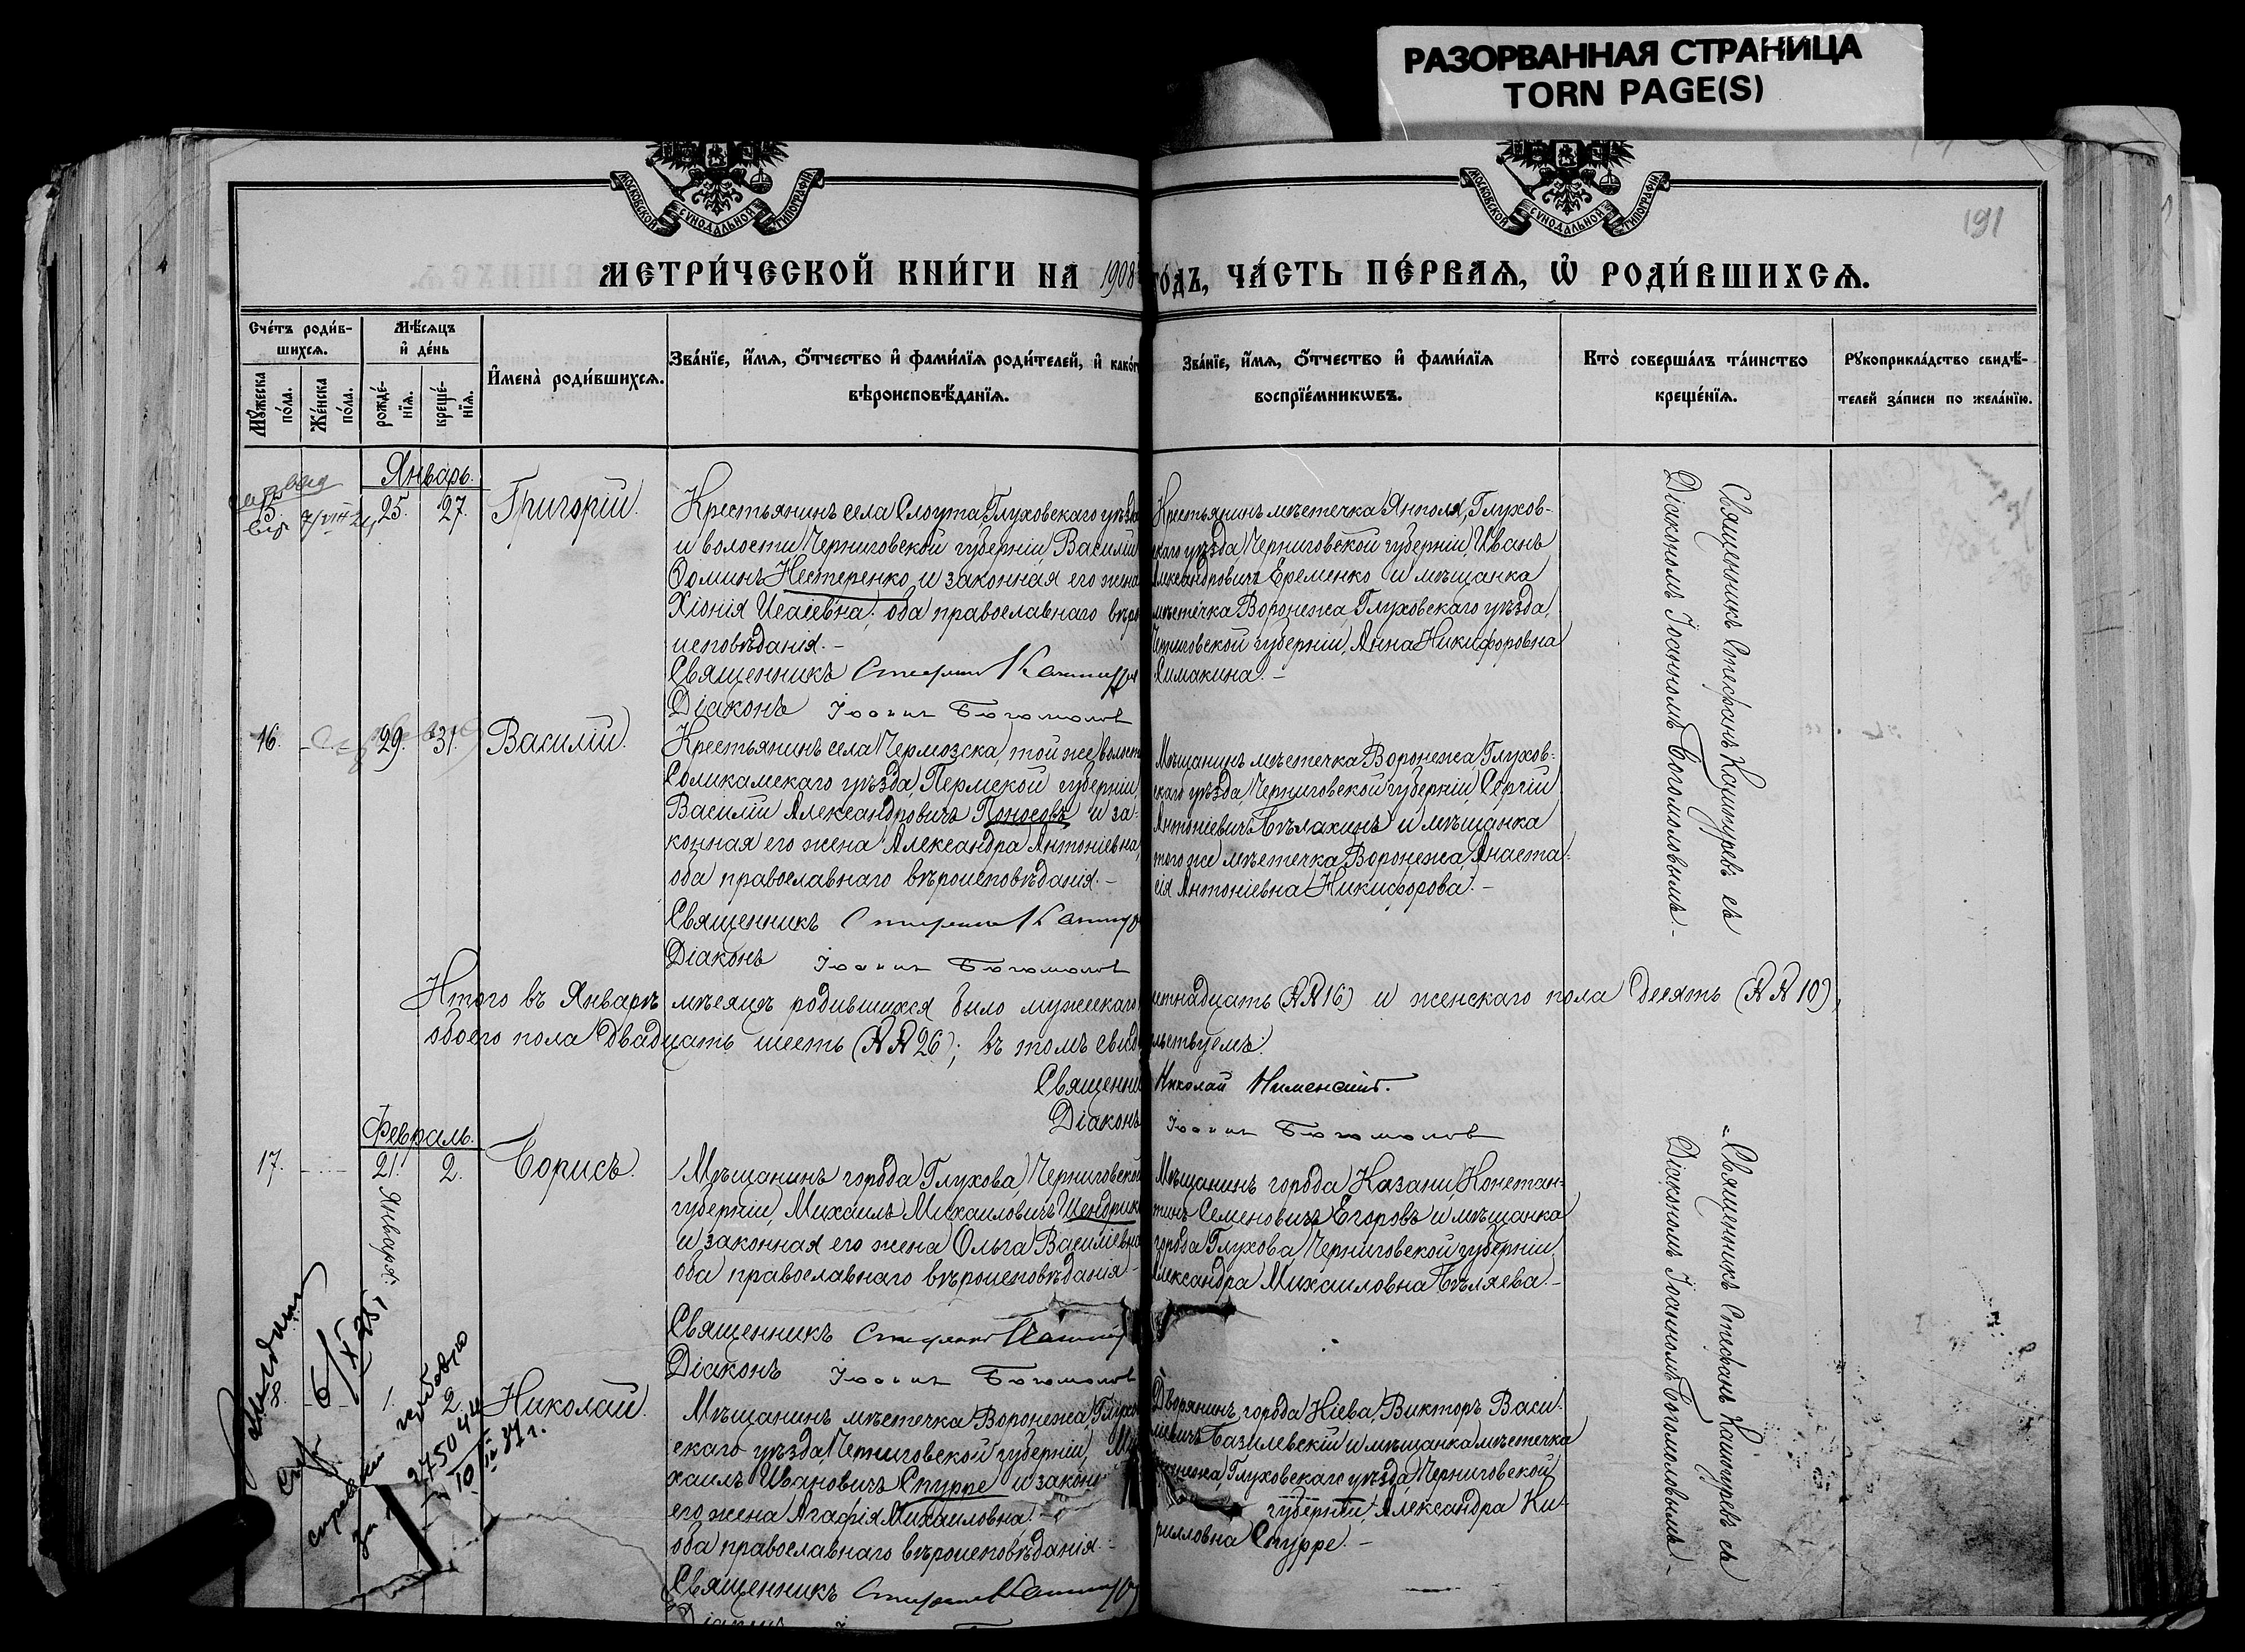 РАЗОРВАННАЯ СТРАНИЦА
TORN PAGE(S)
МОСКОВСКОЙ СУНОДАЛЬНОЙ ТИПОГРАФІИ
МОСКОВСКОЙ СУНОДАЛЬНОЙ ТИПОГРАФІИ
191
МЕТРИ́ЧЕСКОЙ КНИ́ГИ НА 1908 ГО́ДЪ, ЧА́СТЬ ПЕ́РВАѦ, Ѡ҆ РОДИ́ВШИХСѦ.
Сче́тъ роди́в-
шихсѧ.
Мꙋжеска по́ла.
Же́нска по́ла.
Мѣ́сѧцъ
и҆ де́нь
рожде́-
нїѧ.
креще́-
нїѧ.
И҆мена̀ роди́вшихсѧ.
Зва́нїе, и҆́мѧ, ѻ҆́тчество и҆ фами́лїѧ роди́телей, и҆ како́г
вѣроисповѣ́данїѧ.
Зва́нїе, и҆́мѧ, ѻ҆́тчество и҆ фами́лїѧ
воспрїе́мникѡвъ.
Кто̀ соверша́лъ та́инство
креще́нїѧ.
Рꙋкоприкла́дство свидѣ́-
телей за́писи по жела́нїю.
Январь.
25. 27. Григорій.
Крестьянинъ села Слоута Глуховскаго уѣзда
и волости Черниговской губерніи, Василій
Ѳоминъ Нестеренко и законная его жена
Хіонія Исаіевна; оба православнаго вѣро
исповѣданія.-
Священникъ
Діаконъ Іоаннъ Богомолов
Крестьянинъ мѣстечка Янполя, Глухов-
скаго уѣзда Черниговской губерніи, Иванъ
Александровичъ Еременко и мѣщанка
мѣстечка Воронежа, Глуховскаго уѣзда,
Черниговской губерніи, Анна Никифоровна
Симакина.-
Священникъ Стефанъ Кашкуревъ съ
Діакономъ Іоанномъ Богомоловымъ.-
16. 29. 31. Василій.
Крестьянинъ села Чермозска, той же волости
Соликамскаго уѣзда, Пермской губерніи,
Василій Александровичъ Поносовъ и за-
конная его жена Александра Антоніевна,
оба православнаго вѣроисповѣданія.-
Священникъ
Діаконъ Іоаннъ Богомолов
Мѣщанинъ мѣстечка Воронежа, Глухов-
скаго уѣзда, Черниговской губерніи, Сергій
Антоніевичъ Бѣлахинъ и мѣщанка
того же мѣстечка Воронежа, Анаста-
сія Антоніевна Никифорова.-
Итого въ Январѣ мѣсяцѣ родившихся было мужескаго стнадцать (№№ 16) и женскаго пола десять (№№ 10),
обоего пола двадцать шесть (№№ 26); въ томъ свидѣтельствуемъ:
Священни Николай
Діаконъ Іоаннъ Богомолов
Февраль.
17. 21. Января. 2. Борисъ.
Мѣщанинъ города Глухова, Черниговской
губерніи, Михаилъ Михаиловичъ Цендрик
и законная его жена Ольга Василіевна
оба православнаго вѣроисповѣданія.-
Священникъ
Діаконъ Іоаннъ Богомолов
Мѣщанинъ города Казани, Констан-
тинъ Семеновичъ Егоровъ и мѣщанка
города Глухова Черниговской губерніи,
Александра Михаиловна Бѣляева.-
Священникъ Стефанъ Кашкуревъ съ
Діакономъ Іоанномъ Богомоловымъ.-
18. 1. 2. Николай.
Мѣщанинъ мѣстечка Воронежа, Глухо
скаго уѣзда, Черниговской губерніи, Ми
хаилъ Ивановичъ Спурре и законн
его жена Агафія Михаиловна.-
оба православнаго вѣроисповѣданія.-
Священникъ
Діаконъ
Дворянинъ города Кіева, Викторъ Васи-
ліевичъ Базилевскій и мѣщанка мѣстечка
Глуховскаго уѣзда, Черниговской
губерніи, Александра Ки-
рилловна Спурре.-